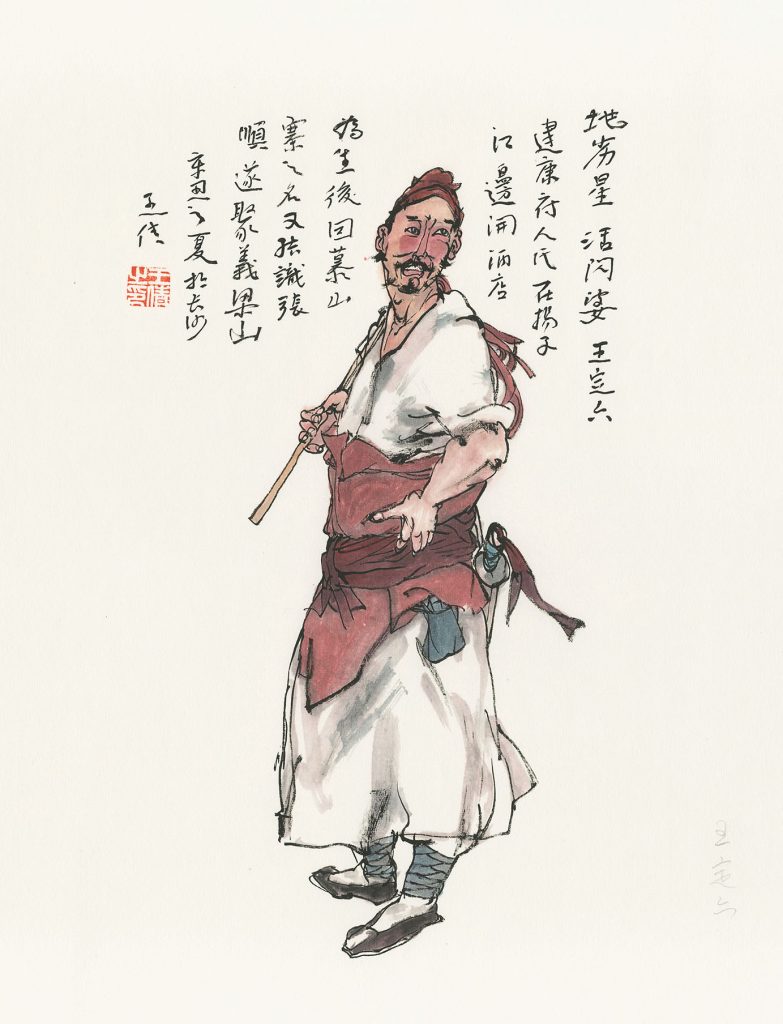 地劣星 活闪婆 王定六
建康府人氏在揚子
江邊開酒店
為生後因慕山
寨之名又结識張
順遂聚義梁山
辛之夏於长沙
王
王定六